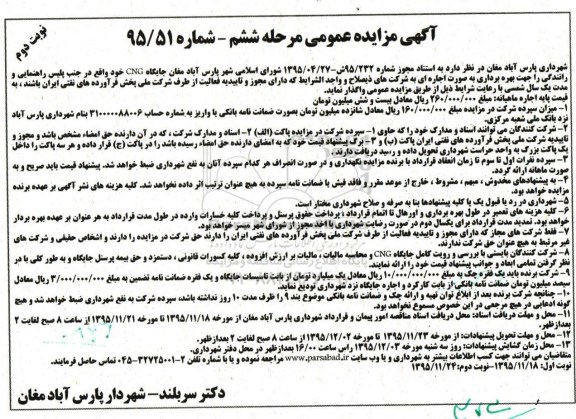 نوبت دوم
آگهی مزایده عمومی مرحله ششم - شماره ۹۵/۵۱
شهرداری پارس آباد مغان در نظر دارد به استناد مجوز شماره ۹۵/۲۳۲ش-۱۳۹۵/۰۴/۲۷ شورای اسلامی شهر پارس آباد مغان جایگاه CNG خود واقع در جنب پلیس راهنمایی و
رانندگی را جهت بهره برداری به صورت اجاره ای به شرکت های ذیصلاح و واجد الشرایط که دارای مجوز و تاییدیه فعالیت از طرف شرکت ملی پخش فرآورده های نفتی ایران باشند، به
مدت یک سال شمسی با رعایت شرایط ذیل از طریق مزایده عمومی واگذار نماید.
قیمت پایه اجاره ماهیانه: مبلغ ۲۶۰/۰۰۰/۰۰۰ ریال معادل بیست و شش میلیون تومان
۱- میزان سپرده شرکت در مزایده مبلغ ۱۶۰/۰۰۰/۰۰۰ ریال معادل شانزده میلیون تومان بصورت ضمانت نامه بانکی یا واریز به شماره حساب ۳۱۰۰۰۰۰۸۸۰۰۶ بنام شهرداری پارس آباد
نزد بانک ملی شعبه مرکزی.
۲- شرکت کنندگان می توانند اسناد و مدارک خود را که حاوی ۱- سپرده شرکت در مزایده پاکت (الف) ۲- اسناد و مدارک شرکت، که در آن دارنده حق امضاء مشخص باشد و مجوز و
تاییدیه شرکت ملی پخش فرآورده های نفتی ایران پاکت (ب) و ۳- برگ پیشنهاد قیمت خود که به امضای دارنده حق امضاء رسیده باشد را در پاکت (ج) قرار داده و هر سه پاکت را داخل
یک پاکت بزرگ به واحد حراست شهرداری تحویل داده و رسید دریافت دارند.
۳- سپرده نفرات اول تا سوم تا زمان انعقاد قرارداد با برنده مزایده نگهداری و در صورت انصراف هر کدام سپرده آنان به نفع شهرداری ضبط خواهد شد. پیشنهاد قیمت باید صریح و به
صورت ماهانه ارائه گردد.
۴- به پیشنهادهای مخدوش، مبهم، مشروط، خارج از موعد مقرر و فاقد فیش یا ضمانت نامه سپرده به هیچ عنوان ترتیب اثر داده نخواهد شد. کلیه هزینه های نشر آگهی بر عهده برنده
مزایده خواهد بود.
۵- شهرداری در رد یا قبول یک یا کلیه پیشنهادها بنا به صرفه و صلاح شهرداری مختار است.
۶- کلیه هزینه های تعمیر در طول بهره برداری و اورهال تا اتمام قرارداد، پرداخت حقوق پرسنل و پرداخت کلیه خسارات وارده در طول مدت قرارداد به هر عنوان بر عهده بهره بردار
خواهد بود. تمدید مدت قرارداد برای یکسال دوم در صورت رضایت شهرداری با اخذ مجوز از شورای شهر میسر خواهد بود.
۷- فقط شرکت های مجاز که دارای مجوز و تاییدیه فعالیت از طرف شرکت ملی پخش فرآورده های نفتی ایران را دارند حق شرکت در مزایده را دارند و اشخاص حقیقی و شرکت های
غیر مرتبط به هیچ عنوان حق شرکت ندارند.
۸- شرکت کنندگان بایستی با بررسی و رویت کامل جایگاه CNG و محاسبه مالیات، مالیات بر ارزش افزوده، کلیه کسورات قانونی، دستمزد و حق بیمه پرسنل جایگاه و به طور کلی با در
نظر گرفتن تمامی ابعاد و جوانب پیشنهاد قیمت خود را ارائه نمایند.
۹- شرکت برنده باید یک فقره چک به مبلغ ۱۰/۰۰۰/۰۰۰/۰۰۰ ریال معادل یک میلیارد تومان از بابت تاسیسات جایگاه و یک فقره ضمانت نامه تضمین به مبلغ ۳/۰۰۰/۰۰۰/۰۰۰ ریال معادل
سیصد میلیون تومان ضمانت نامه بانکی از بابت کارکرد و اجاره جایگاه نزد شهرداری تودیع نماید.
۱۰- چنانچه شرکت برنده بعد از ابلاغ توان تهیه و ارائه چک و ضمانت نامه بانکی موضوع بند ۹ را ظرف مدت ۱۰ روز نداشته باشد، سپرده شرکت به نفع شهرداری ضبط خواهد شد و هیچ
گونه ادعایی در هیچ مرجعی در این خصوص مسموع نخواهد بود.
۱۱- محل و مهلت دریافت اسناد: محل دریافت اسناد مناقصه امور پیمان و قرارداد شهرداری پارس آباد مغان از مورخه ۱۳۹۵/۱۱/۱۸ تا مورخه ۱۳۹۵/۱۱/۲۱ از ساعت ۸ صبح لغایت ۲
بعدازظهر.
۱۲- محل و مهلت تحویل پیشنهادات: از مورخه ۱۳۹۵/۱۱/۲۳ تا مورخه ۱۳۹۵/۱۲/۰۲ از ساعت ۸ صبح لغایت ۲ بعدازظهر.
۱۳- محل زمان گشایش پیشنهادات: روز سه شنبه مورخه ۱۳۹۵/۱۲/۰۳ راس ساعت ۱۶/۰۰ بعدازظهر در محل دفتر شهرداری.
متقاضیان می توانند جهت کسب اطلاعات بیشتر به شهرداری و یا وب سایت www.parsabad.ir مراجعه نموده و یا با شماره تلفن ۲-۳۲۷۲۵۰۰۱-۰۴۵ تماس حاصل فرمایند.
نوبت اول: ۱۳۹۵/۱۱/۱۸-نوبت دوم: ۱۳۹۵/۱۱/۲۴
دکتر سربلند- شهردار پارس آباد مغان